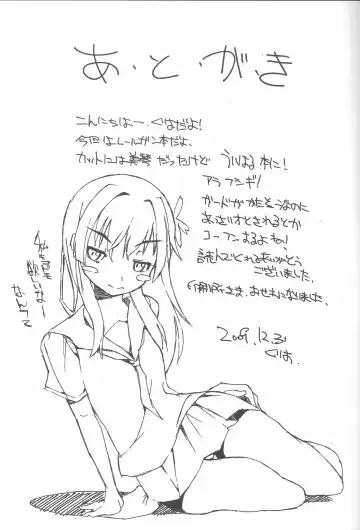 あ・と・がき
こんにちはー、ぐりおだよ!
今回はレールガン本だよ。
カットには美琴だったけど
うい×はる本に!
アラフシギ!
ガードがかたそうなのに
あっさりおとされるとか
コーフンするよね!
読んでくれてありがとう
ございました。
おせわになりました。
2009.12.31
ぐりお。
私も
欲しいなー
なんつて